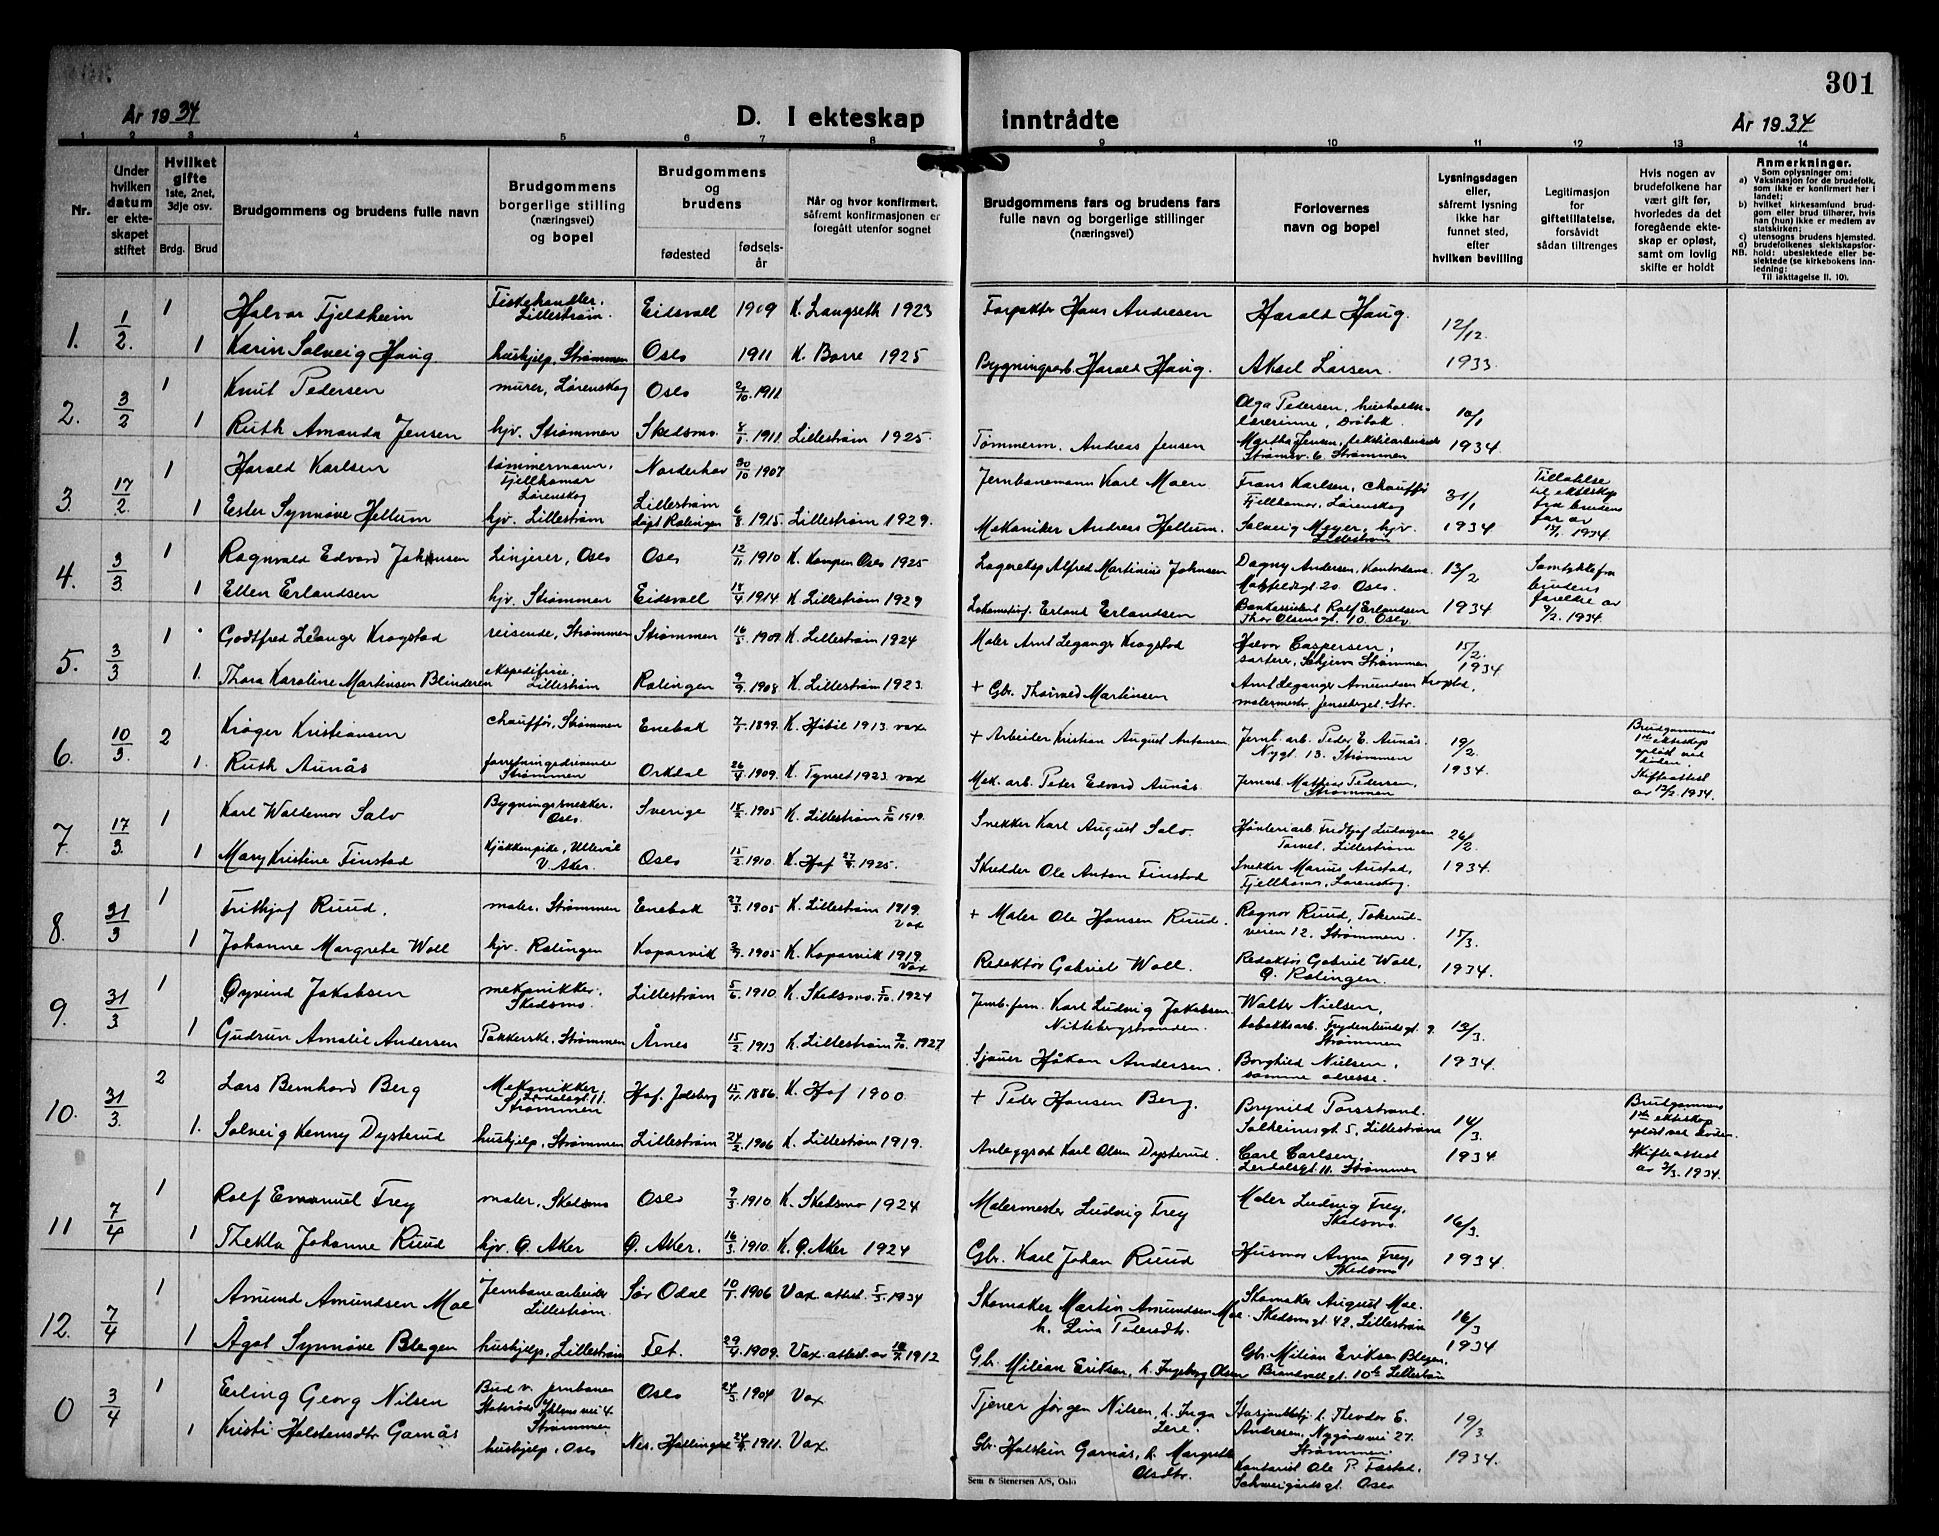 301
År 1934
D. I ekteskap inntrådte
År 1934
1 2 3 4 5 6 7 8 9 10 11 12 13 14
Nr.
Under hvilken datum er ekteskapet stiftet
Hvilket gifte 1ste, 2net, 3dje osv.
Brdg. Brud
Brudgommens og brudens fulle navn
Brudgommens borgerlige stilling (næringsvei) og bopel
Brudgommens og brudens
fødested
fødsels-år
Når og hvor konfirmert, såfremt konfirmasjonen er foregått utenfor sognet
Brudgommens fars og brudens fars fulle navn og borgerlige stillinger (næringsvei)
Forlovernes navn og bopel
Lysningsdagen eller, såfremt lysning ikke har funnet sted, efter hvilken bevilling
Legitimasjon for giftetillatelse, forsåvidt sådan tiltrenges
Hvis nogen av brudefolkene har vært gift før, hvorledes da det foregående ekteskap er opløst, samt om lovlig skifte er holdt
Anmerkninger.
Som oplysninger om:
a) Vaksinasjon for de brudefolk, som ikke er konfirmert her i landet;
b) hvilket kirkesamfund brudgom eller brud tilhører, hvis han (hun) ikke er medlem av statskirken;
c) utensogns brudens hjemsted.
d) brudefolkenes slektskapsforhold: ubeslektede eller beslektede (se kirkebokens innledning:
NB. Til iakttagelse II. 10).
1. 1/2. 1 Halvar Fjeldheim Fiskehandler, Lillestrøm. Eidsvoll 1909 K. Langseth 1923 Forpakter Hans Andresen Harald Haug. 12/12.
1 Karin Solveig Haug hushjelp, Strømmen Oslo 1911 K. Borre 1925 Bygningsarb. Harald Haug. Aksel Larsen. 1933
2. 3/2 1 Knut Pedersen murer, Lørenskog Oslo 2/10 1911 Olga Pedersen, husholdn-lærerinne, Drøbak. 10/1
1 Ruth Amanda Jensen hjv. Strømmen Skedsmo 1911 Lillestrøm 1925. Tømmerm. Andreas Jensen Martha Jensen, tekstilarbeiderske Strømsv. 6 Strømmen 1934
3. 17/2. 1 Harald Karlsen tømmermann, Fjellhamar Lørenskog Norderhov 30/10 1907 Jernbanemann Karl Moen Frans Karlsen, chauffør Fjellhamar, Lørenskog 31/1 Tillatelse til ekteskap fra brudens far av 15/1 1934.
1 Ester Synnøve Hellum hjv. Lillestrøm Lillestrøm døpt Rælingen 6/8 1915 Lillestrøm 1929. Mekaniker Andreas Hellum. Solveig Meyer, hjv. Lillestrøm 1934
4. 3/3 1 Ragnvald Edvard Johnsen Linjerer, Oslo Oslo 12/11 1910 K. Kampen Oslo 1925 Lagereksp Alfred Martinius Johnsen Dagny Andersen, Kontordame. Oslo. 13/2 Samtykke fra brudens forelder av 9/2. 1934.
1 Ellen Erlandsen hjv. Strømmen Eidsvoll 18/4 1914 K. Lillestrøm 1929 Lokomotivf. Erland Erlandsen Bankassistent Rolf Erlandsen Thor Olsensgt. 10. Oslo 1934
5. 3/3 1 Godtfred Leganger Krogstad reisende, Strømmen Strømmen 16/5 1909 K. Lillestrøm 1924 Maler Arnt Leganger Krogstad Halvor Caspersen, sorterer, Skjerva Strømmen 15/2 1934
1. Thora Karoline Martinsen Blinderen ekspeditrise, Lillestrøm Rælingen 9/9 1908 K. Lillestrøm 1923. + Gbr. Thorvald Martinsen Arnt Leganger Amundsen Krogstad, malermestr. Str.
6. 10/3. 2 Krøger Kristiansen chauffør, Strømmen Enebakk 7/1 1899 K. Høbøl 1913. vax + Arbeider Kristian August Antonsen Jernb. arb. Peder E. Aunås. Nygt. 13. Strømmen 19/2 Brudgommens 1ste ekteskap opløst ved døden. Skifteattest av 13/2. 1934.
1. Ruth Aunås forretningsdrivende Strømmen Orkdal 26/4 1909. K. Tynset 1923 vax Mek. arb. Peter Edvard Aunås. Jernarb. Mathias Pedersen, Strømmen 1934.
7. 17/3. 1 Karl Waldemar Salv Bygningssnekker. Oslo. Sverige 18/2 1905 K. Lillestrøm 5/10 1919. Snekker Karl August Salv Fridtjof Ludvigsen Torvet. Lillestrøm 26/2
1 Mary Kristine Finstad kjøkkenpike, Ullevål V. Aker. Oslo 15/2 1910 K. Hof 27/9 1925. Skredder Ole Anton Finstad Snekker Marius Austad, Fjellhamar, Lørenskog. 1934.
8. 31/3 1 Frithjof Ruud. maler, Strømmen Enebakk 27/3 1905 K. Lillestrøm 1919. Vax + Maler Ole Hansen Ruud. Ragnar Ruud, Tokerud-veien 12. Strømmen. 15/3.
1 Johanne Margrete Woll hjv. Rælingen Kopervik 2/9 1905 K. Kopervik 1919. Vax Redaktør Gabriel Woll. Redaktør Gabriel Woll, Ø. Rælingen. 1934.
9. 31/3 1 Øyvind Jakobsen mekanikker. Skedsmo. Lillestrøm 5/6 1910 K. Skedsmo. 5/10 1924 Jernb.fem. Karl Ludvig Jakobsen. Nittebergstranden. Walter Nielsen, tobakksarb. Frydenlundsgt. 9. Strømmen 13/3.
1 Gudrun Amalie Andersen Pakkerske, Strømmen Årnes 15/2 1913 K. Lillestrøm 2/10 1927 Sjauer Håkon Andersen. Borghild Nielsen, samme adresse. 1934.
10. 31/3. 2 Lars Bernhard Berg Mekanikker, Lerdalsgt. 11. Strømmen Hof. Jølsberg 15/11 1886 K. Hof 1900 + Peder Hansen Berg. Brynild Torsstrand. Solheimsgt 5, Lillestrøm 14/3. Brudgommens 1ste ekteskap opløst ved døden. Skifteattest av 3/3. 1934.
1. Solveig Kenny Dysterud hushjelp, Strømmen Lillestrøm 24/2 1906 K. Lillestrøm 1919. Anleggsarb Karl Olsen Dysterud. Carl Carlsen, Lerdalsgt. 11. Strømmen 1934
11 7/4 1 Rolf Emanuel Frey maler, Skedsmo Oslo 9/3 1910 K. Skedsmo 1924 Malermester Ludvig Frey Maler Ludvig Frey, Skedsmo. 16/3.
1 Thekla Johanne Ruud hjv. Ø. Aker Ø. Aker. 16/3 1910. K. Ø. Aker 1924 Gbr. Karl Johan Ruud Husmor Anna Frey, Skedsmo 1934.
12. 7/4 1 Amund Amundsen Moe Jernbanearbeider Lillestrøm. Sør Odal 10/1 1906 Vax attest. 5/3 1934 Skomaker Martin Amundsen Moe. h. Lina Pedersdtr. Skomaker August Moe. Skedsmogt 42, Lillestrøm 16/3
1 Ågot Synnøve Blegen hushjelp, Lillestrøm Fet. 29/4 1909. Vax attest. av 1912 Gbr. Milian Eriksen, h. Ingeborg Olsen Gbr. Milian Eriksen Blegen. Brandvoldgt. 10b Lillestrøm 1934
0 3/4 1 Erling Georg Nilsen Bud v. Jernbanen Strømmen. Oslo 24/3 1904 Vax Tjener Jørgen Nilsen, h. Inga Theodor E. Andresen, Nygårdsvei 27. Strømmen. 19/3
1 Kristi Holstensdtr Garnås hushjelp, Oslo Nes. Hallingdal 1911. Vax Gbr. Holstein Garnås, h. Margrethe Olsdtr. Kontorist Ole P. Fastad, Schweigårdsgt. Oslo 1934.
Sem & Stenersen A/S, Oslo